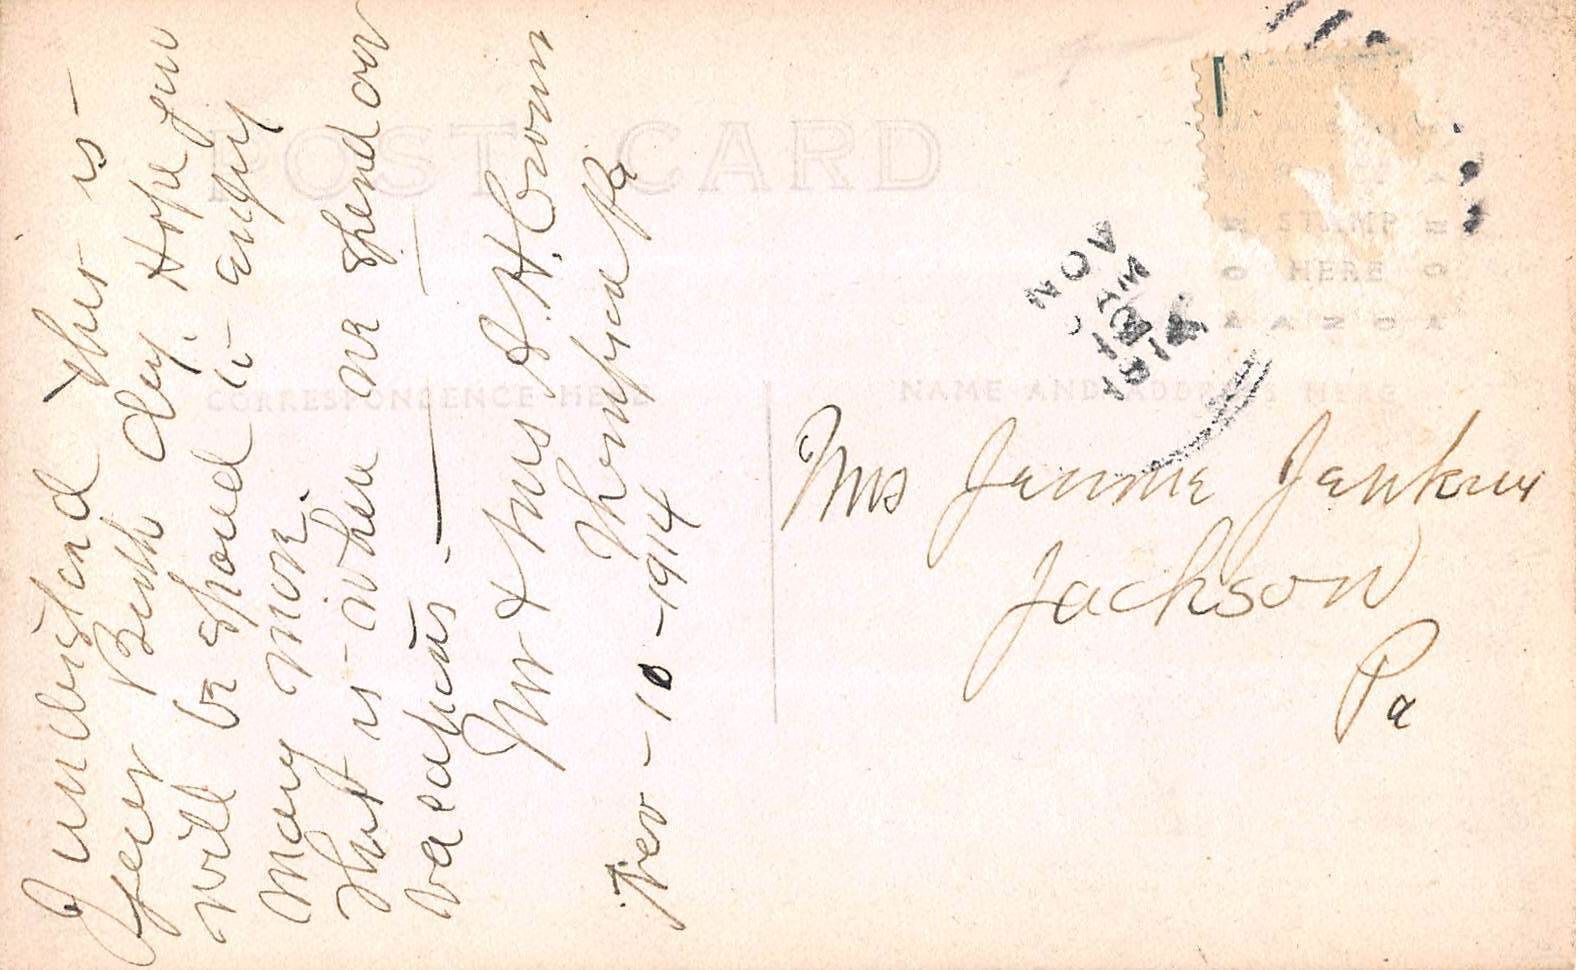 POST CARD
CORRESPONDENCE HERE
NAME AND ADDRESS HERE
STAMP
HERE
AZO
NOV
AM
1914
I understand this is
your Birth day. Hope you
will be spared to enjoy
many more.
that is where we spend our
vacations.
Mr & Mrs H. Crom
Thompson Pa
Nov-10-1914
Mrs Jennie Jenkins
Jackson
Pa